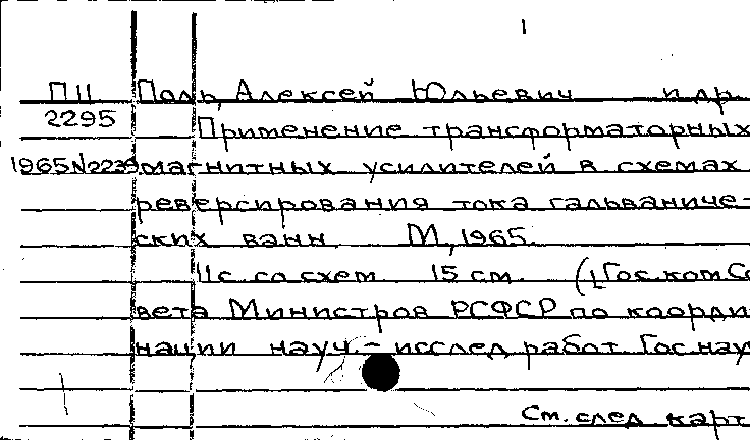 П11 Поль, Алексей Юльевич и др.
2295 Применение трансформаторных
1965 N2239 магнитных усилителей в схемах
реверсирования тока гальваниче-
ских ванн. М., 1965.
11 с. со схем. 15 см. (Гос. ком. Со
вета Министров РСФСР по коорди
нации науч.-исслед. работ. Гос. нау
См. след. карт